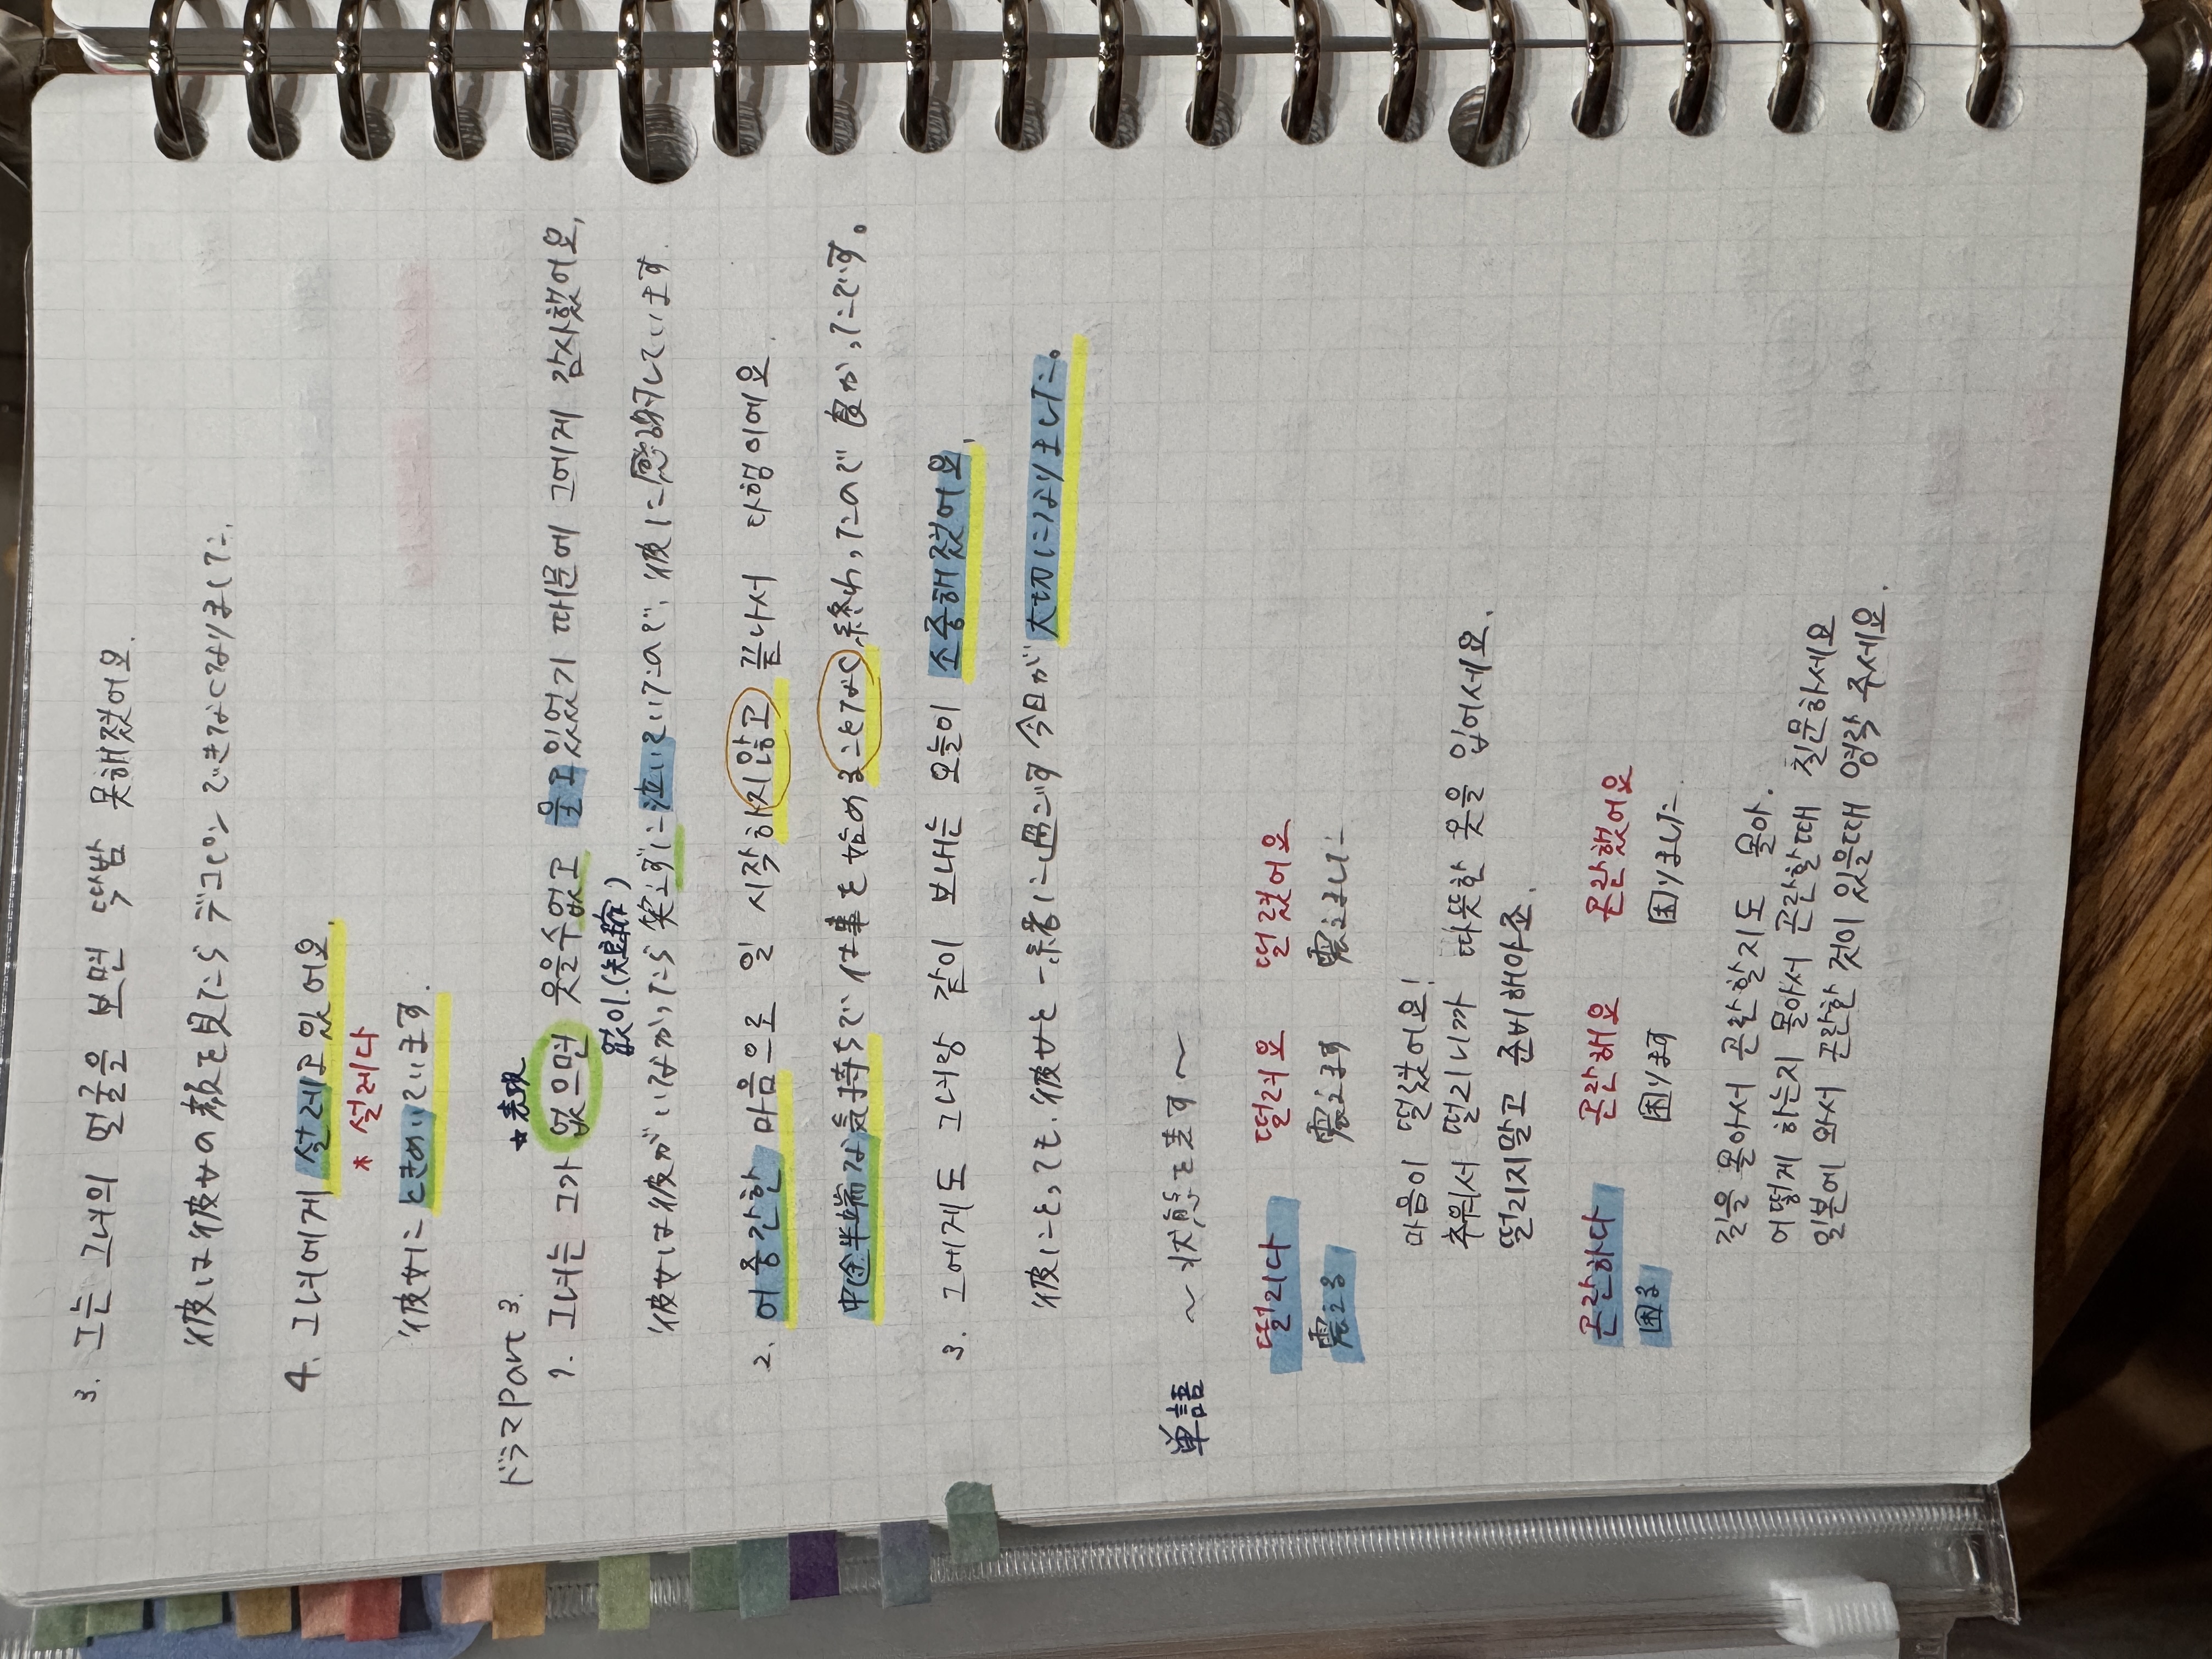 3. 그는 그녀의 얼굴을 보면 딱밤 못해졌어요.
彼は彼女の顔を見たらデコピンできなくなりました.
4. 그녀에게 설레고있어요.
* 설레다
彼女にときめいています.
ドラマPart 3.
★表現
1. 그녀는 그가 없으면 웃을수없고 울고있었기 때문에 그에게 감사했어요.
없이.(短縮)
彼女は彼がいなかったら笑えずに泣いていたので、彼に感謝しています.
2. 어중간한 마음으로 일 시작하지않고 끝나서 다행이에요.
中途半端な気持ちで仕事を始めることなく終わったので良かったです。
3. 그에게도 그녀랑 같이 보내는 오늘이 소중해졌어요.
彼にとっても、彼女と一緒に過ごす今日が大切になりました。
単語 ～状態を表す～
떨리다 떨려요 떨렸어요
震える 震えます 震えました
마음이 떨렸어요!
추워서 떨리니까 따뜻한 옷을 입어세요.
떨리지말고 준비해야죠.
곤란하다 곤란해요 곤란했어요
困る 困ります 困りました.
길을 몰아서 곤란할지도 몰아.
어떻게 하는지 몰아서 곤란할때 질문하세요
일본에 와서 곤란한 것이 있을때 영락 주세요.